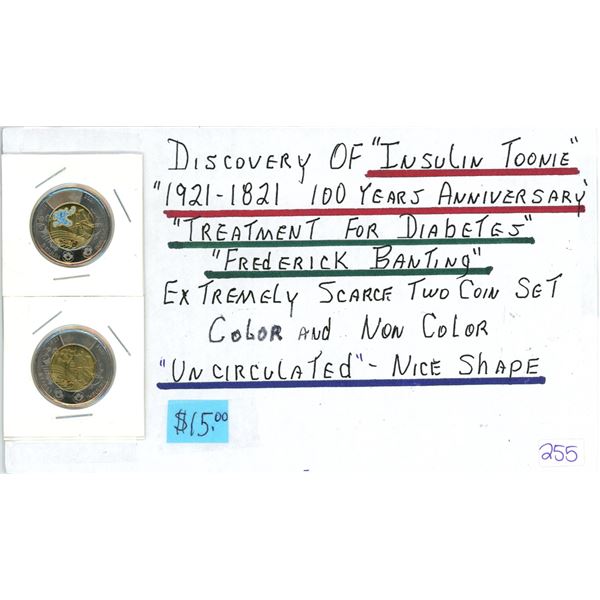 Discovery OF "Insulin Toonie"
"1921-1821 100 Years Anniversary"
"Treatment For Diabetes"
"Frederick Banting"
Extremely Scarce Two Coin Set
Color and Non Color
"Uncirculated" - Nice Shape
$15.00
255